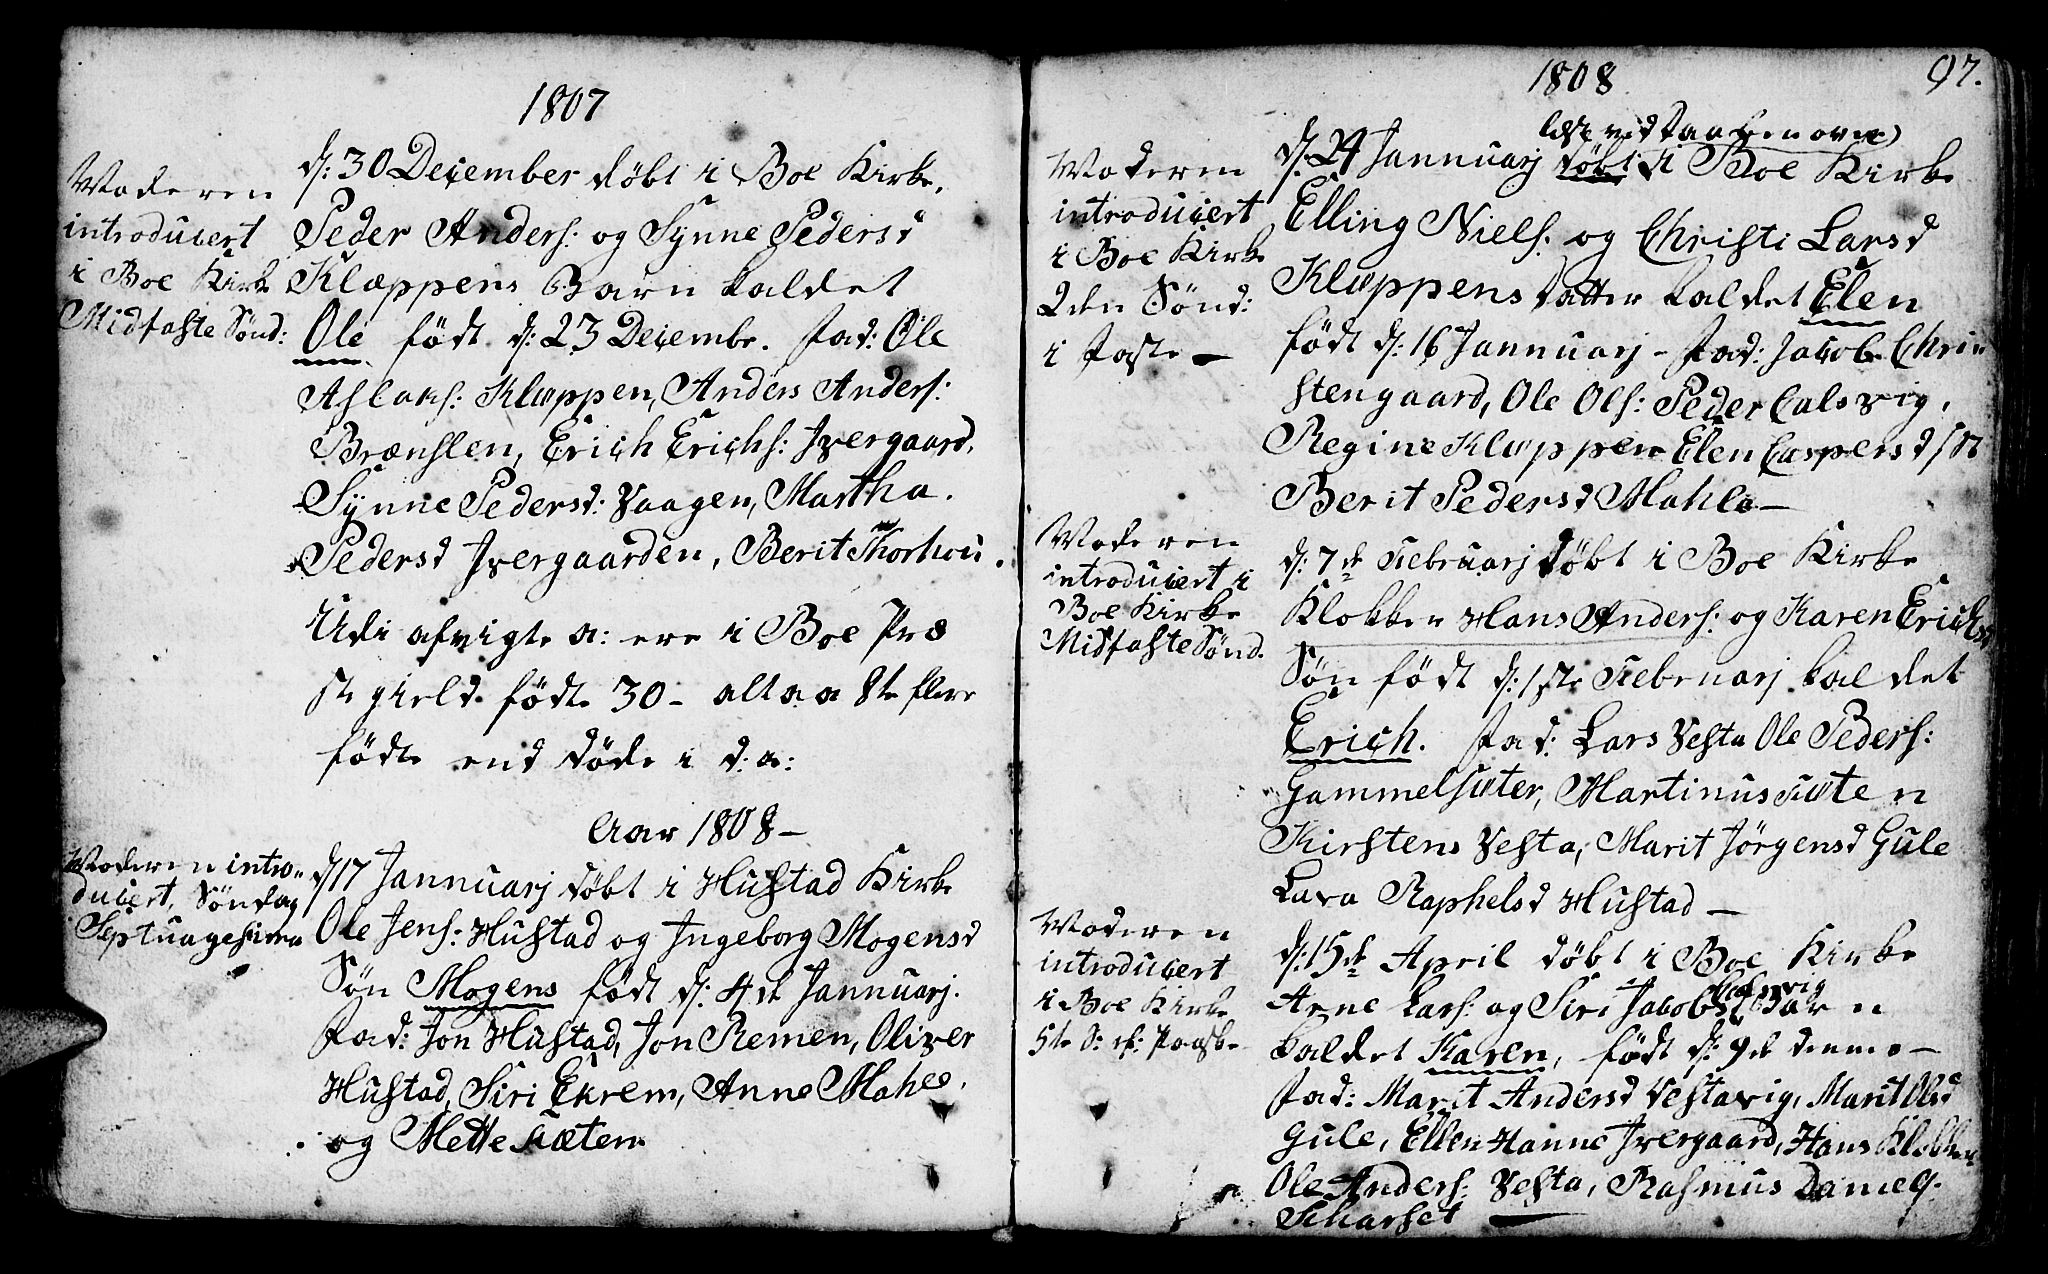 1807
Moderen
introducert
i Boe Kirke
Midfaste Sønd:
d: 30 December døbt i Boe Kirke,
Peder Anders: og Synne Pedersd
Klæppens Barn kaldet
Ole født d: 23 Decembr. Fad: Ole
Aslaks: Klæppen, Anders Anders:
Brænslen, Erich Erichs: Ivergaard,
Synne Pedersd: Vaagen, Martha
Pedersd Ivergaarden, Berit
Udi afvigte a: ere i Boe Præ
stegield fødte 30 - altsaa 8te flere
fødte end døde i d: a:
Aar 1808 -
Moderen intro-
ducert, Søndag
Septuagesima
d 17 Jannuarj døbt i Hustad Kirke
Ole Jens: Hustad og Ingeborg Mogensd
Søn Mogens født d: 4de Jannuarj.
Fad: Jon Hustad, Jon Remen, Oliver
Hustad, Siri Ekrem, Anne Mahle,
og Mette Sæten
1808
97.
Moderen
introducert
i Boe Kirke
2den Sønd:
i Faste -
d: 24 Jannuarj døbt i Boe Kirke
Elling Niels: og Christi Larsd
Klæppens datter kaldet Elen
født d: 16 Jannuarj - Fad: Jacob Chri
stengaard, Ole Ols: Peder Calsvig,
Regine Klæppen Elen Caspersd
Berit Pedersd Mahle -
Moderen
introducert i
Boe Kirke
Midfaste Sønd.
d: 7de Februarj døbt i Boe Kirke
Klokker Hans Anders: og Karen Erichsd
Søn født d: 1ste Februarj kaldet
Erich. Fad: Lars Vesta Ole Peders:
Gammelsæter, Martinus Sæten
Kirstens Vesta, Marit Jørgensd Gule
Lava Raphelsd Hustad -
Moderen
introducert
i Boe Kirke
5te S: ef: Paaske
d: 15de April døbt i Boe Kirke
Arne Lars: og Siri Jacobsd Barn
kaldet Karen, født d: 9de denne -
Fad: Marit Andersd Vestavig, Marit Olsd
Gule, Ellen Hanne Ivergaard, Hans Klokker
Ole Anders: Vesta, Rasmus Daniels:
Skarset